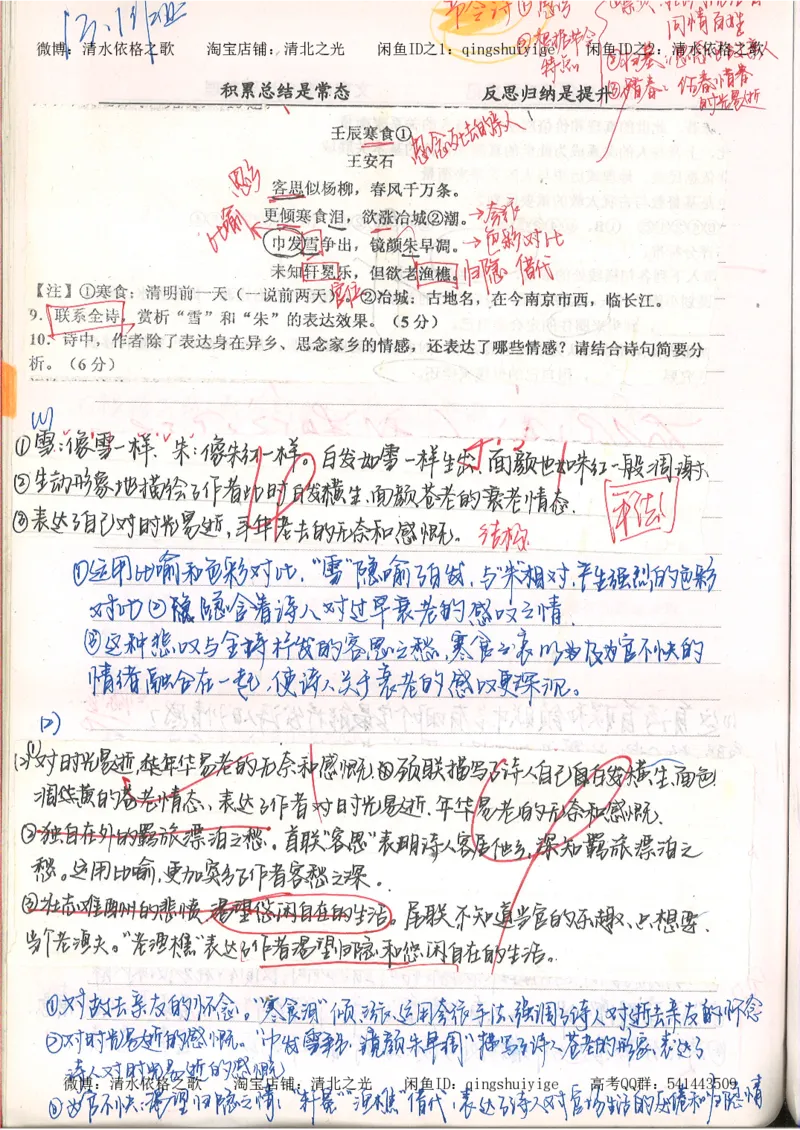 13.11/12
即令诗 ①感伤
同情百姓
微博：清水依格之歌 淘宝店铺：清北之光 闲鱼ID之1：qingshuiyige 闲鱼ID之2：清水依格之歌
特点
③踏春：伤春惜春
时光易逝
积累总结是常态 反思归纳是提升
壬辰寒食①
思念死去的亲人
王安石
思乡
客思似杨柳，春风千万条。
比喻
更倾寒食泪，欲涨冶城②潮。→夸张
巾发雪争出，镜颜朱早凋。→色彩对比
未知轩冕乐，但欲老渔樵。归隐 借代
官位
【注】①寒食：清明前一天（一说前两天）。②冶城：古地名，在今南京市西，临长江。
9．联系全诗，赏析“雪”和“朱”的表达效果。（5分）
10．诗中，作者除了表达身在异乡、思念家乡的情感，还表达了哪些情感？请结合诗句简要分
析。（6分）
(1)
①雪：像雪一样、朱：像朱红一样。白发如雪一样生出，面颜也如朱红一般凋谢、
②生动形象地描绘了作者此时白发横生、面颜苍老的衰老情态.
手法
③表达了自己对时光易逝，年华老去的无奈和感慨。 结构
①运用比喻和色彩对比，“雪”隐喻了白发，与“朱”相对，产生强烈的色彩
对比②隐含着诗人对过早衰老的感叹之情.
③这种悲叹与全诗抒发的客思之愁，寒食之哀以及为官不快的
情绪融合在一起，使诗人关于衰老的感叹更深沉。
(2)
对时光易逝、年华易老的无奈和感慨.颈联描写了诗人自己白发横生，面色
凋朱黄的苍老情态，表达了作者对时光易逝、年华易老的无奈和感慨.
②独自在外的羁旅漂泊之愁。首联“客思”表明诗人客居他乡，深知羁旅漂泊之
愁。运用比喻，更加突出了作者客愁之深。
③壮志难酬的悲愤，渴望悠闲自在的生活。尾联不知道当官的乐趣、只想要
当个老渔夫。“老渔樵”表达了作者渴望归隐和悠闲自在的生活。
①对故去亲友的怀念。“寒食泪”倾、涨，运用夸张手法，强调了诗人对逝去亲友的怀念
②对时光易逝的感慨。“巾发雪争出，镜颜朱早凋”描写了诗人苍老的形象，表达了
诗人对时光易逝的感慨
微博：清水依格之歌 淘宝店铺：清北之光 闲鱼ID：qingshuiyige 高考QQ群：541443509
③为官不快：渴望归隐之情：“轩冕”“渔樵”借代，表达了诗人对官场生活的厌倦和归隐情